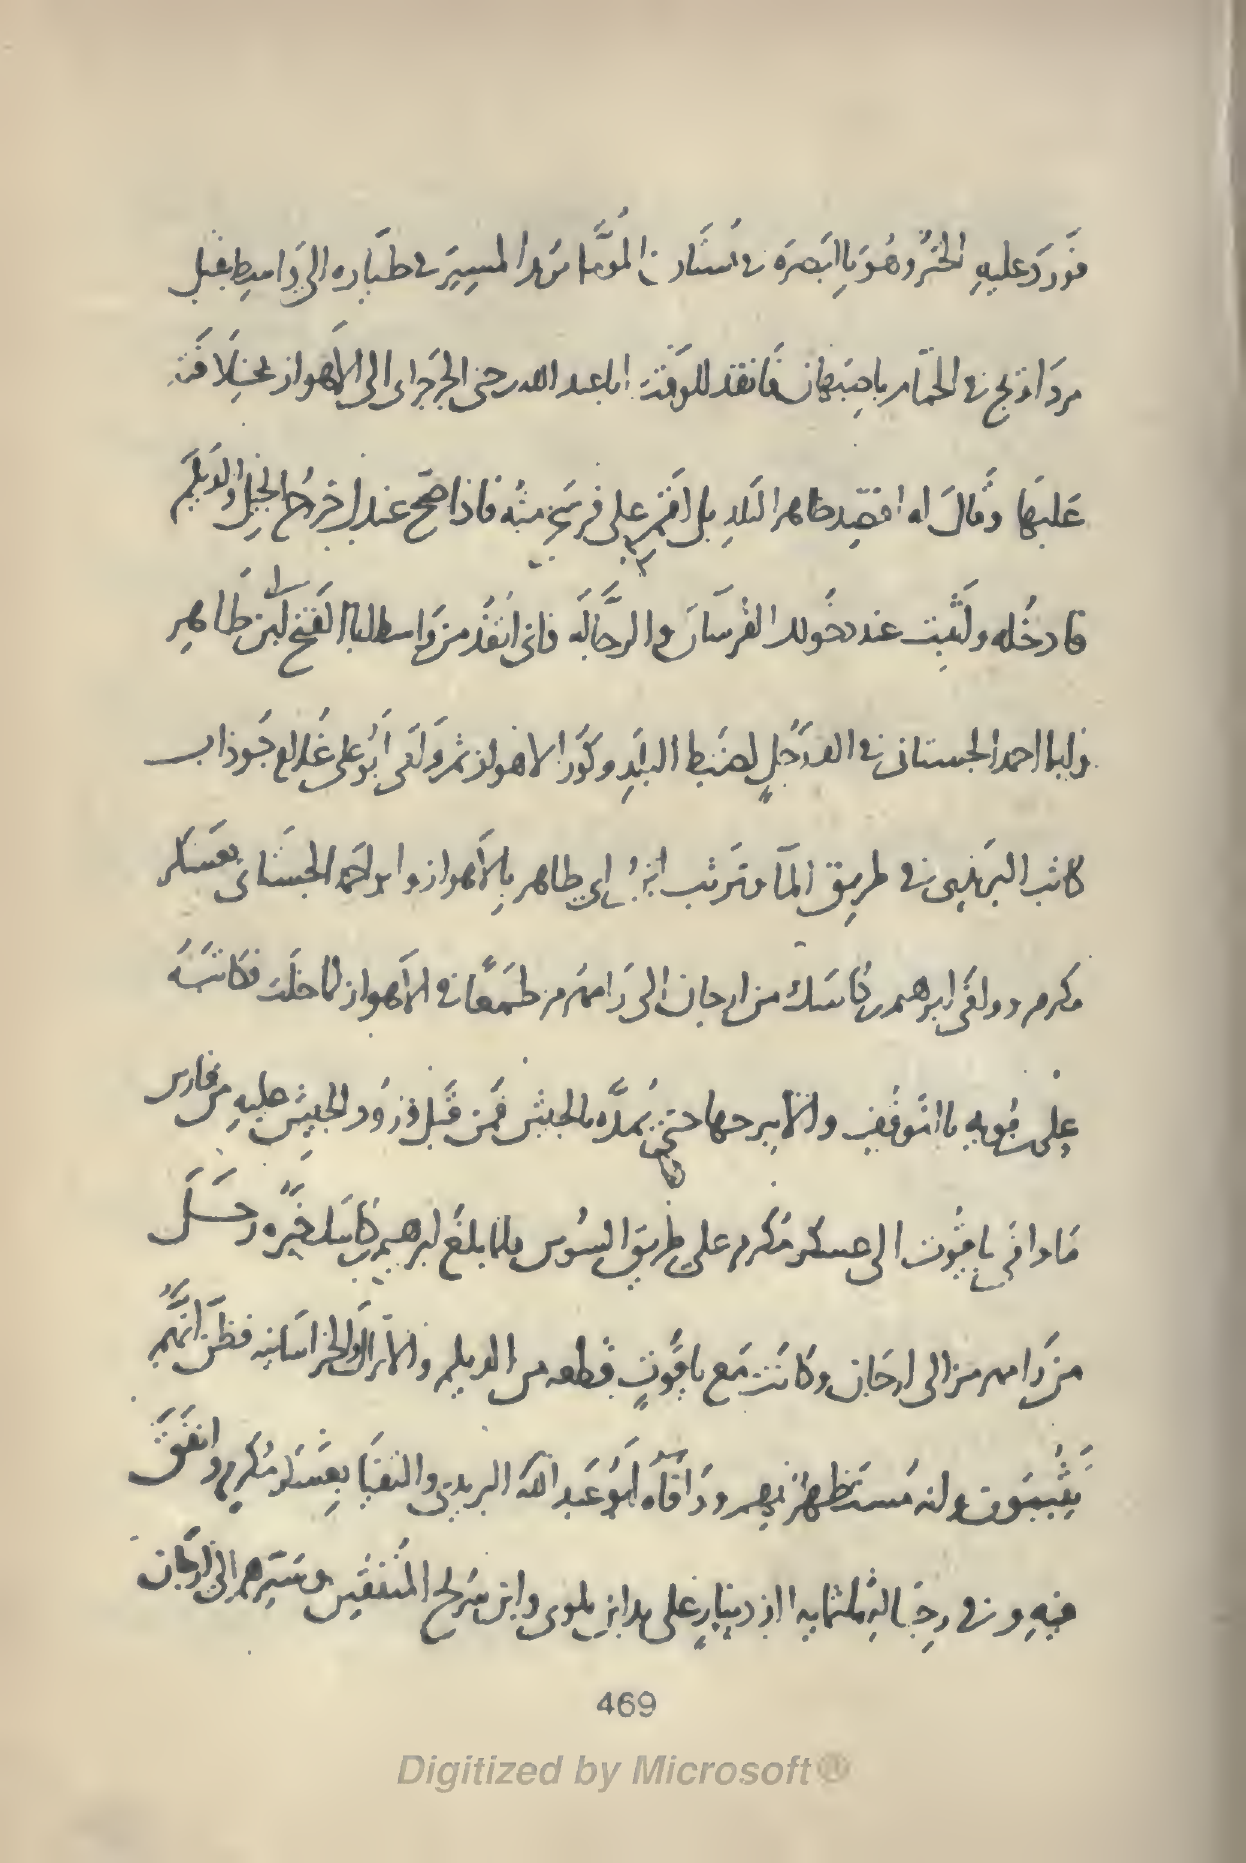 فورد عليه الخبر وهو بالبصرة في المسير في طياره الى واسط بقتل
مرداويج في الحمام باصبهان فانفذ للوقت ابا عبد الله بن جنى الجرجراى الى الاهواز لخلافته
عليها وقال له اقصد ظاهر البلد بل اقم على فرسخ منه فاذا صح عندك خروج الجيل والديلم
فادخله ولتثبت عند دخولك الفرسان والرجاله فانى انفذ من واسط ابا الفتح ابن طاهر
وابا احمد الجستانى في الف رجل لضبط البلد وكور الاهواز ثم وافى ابو على غلام جوذاب
كاتب البريدى في طريق الما وترتب ابن ابى طاهر بالاهواز وابو احمد الجستانى بعسكر
مكرم ووافى ابرهيم بن كاسك من ارجان الى رامهرمز طمعا في الاهواز لما خلت فكاتبه
على بن بويه بالتوقف والا يبرحها حتى يمده بالجيش فمن قبل ورود الجيش عليه من فارس
ما وافى ياقوت الى عسكر مكرم على طريق السوس فلما بلغ ابرهيم بن كاسك خبره رحل
من رامهرمز الى ارجان وكانت مع ياقوت قطعه من الديلم والاتراك والخراسانيه فظن انهم
يقيمون وانه مستظهر بهم ووافاه ابو عبد الله البريدى والتقيا بعسكر مكرم وانفق
فيه وفي رجاله ثلثمايه الف دينار على يد ابن بلوى وابن سريج المنفقين وسيرهم الى ارجان
469
Digitized by Microsoft®